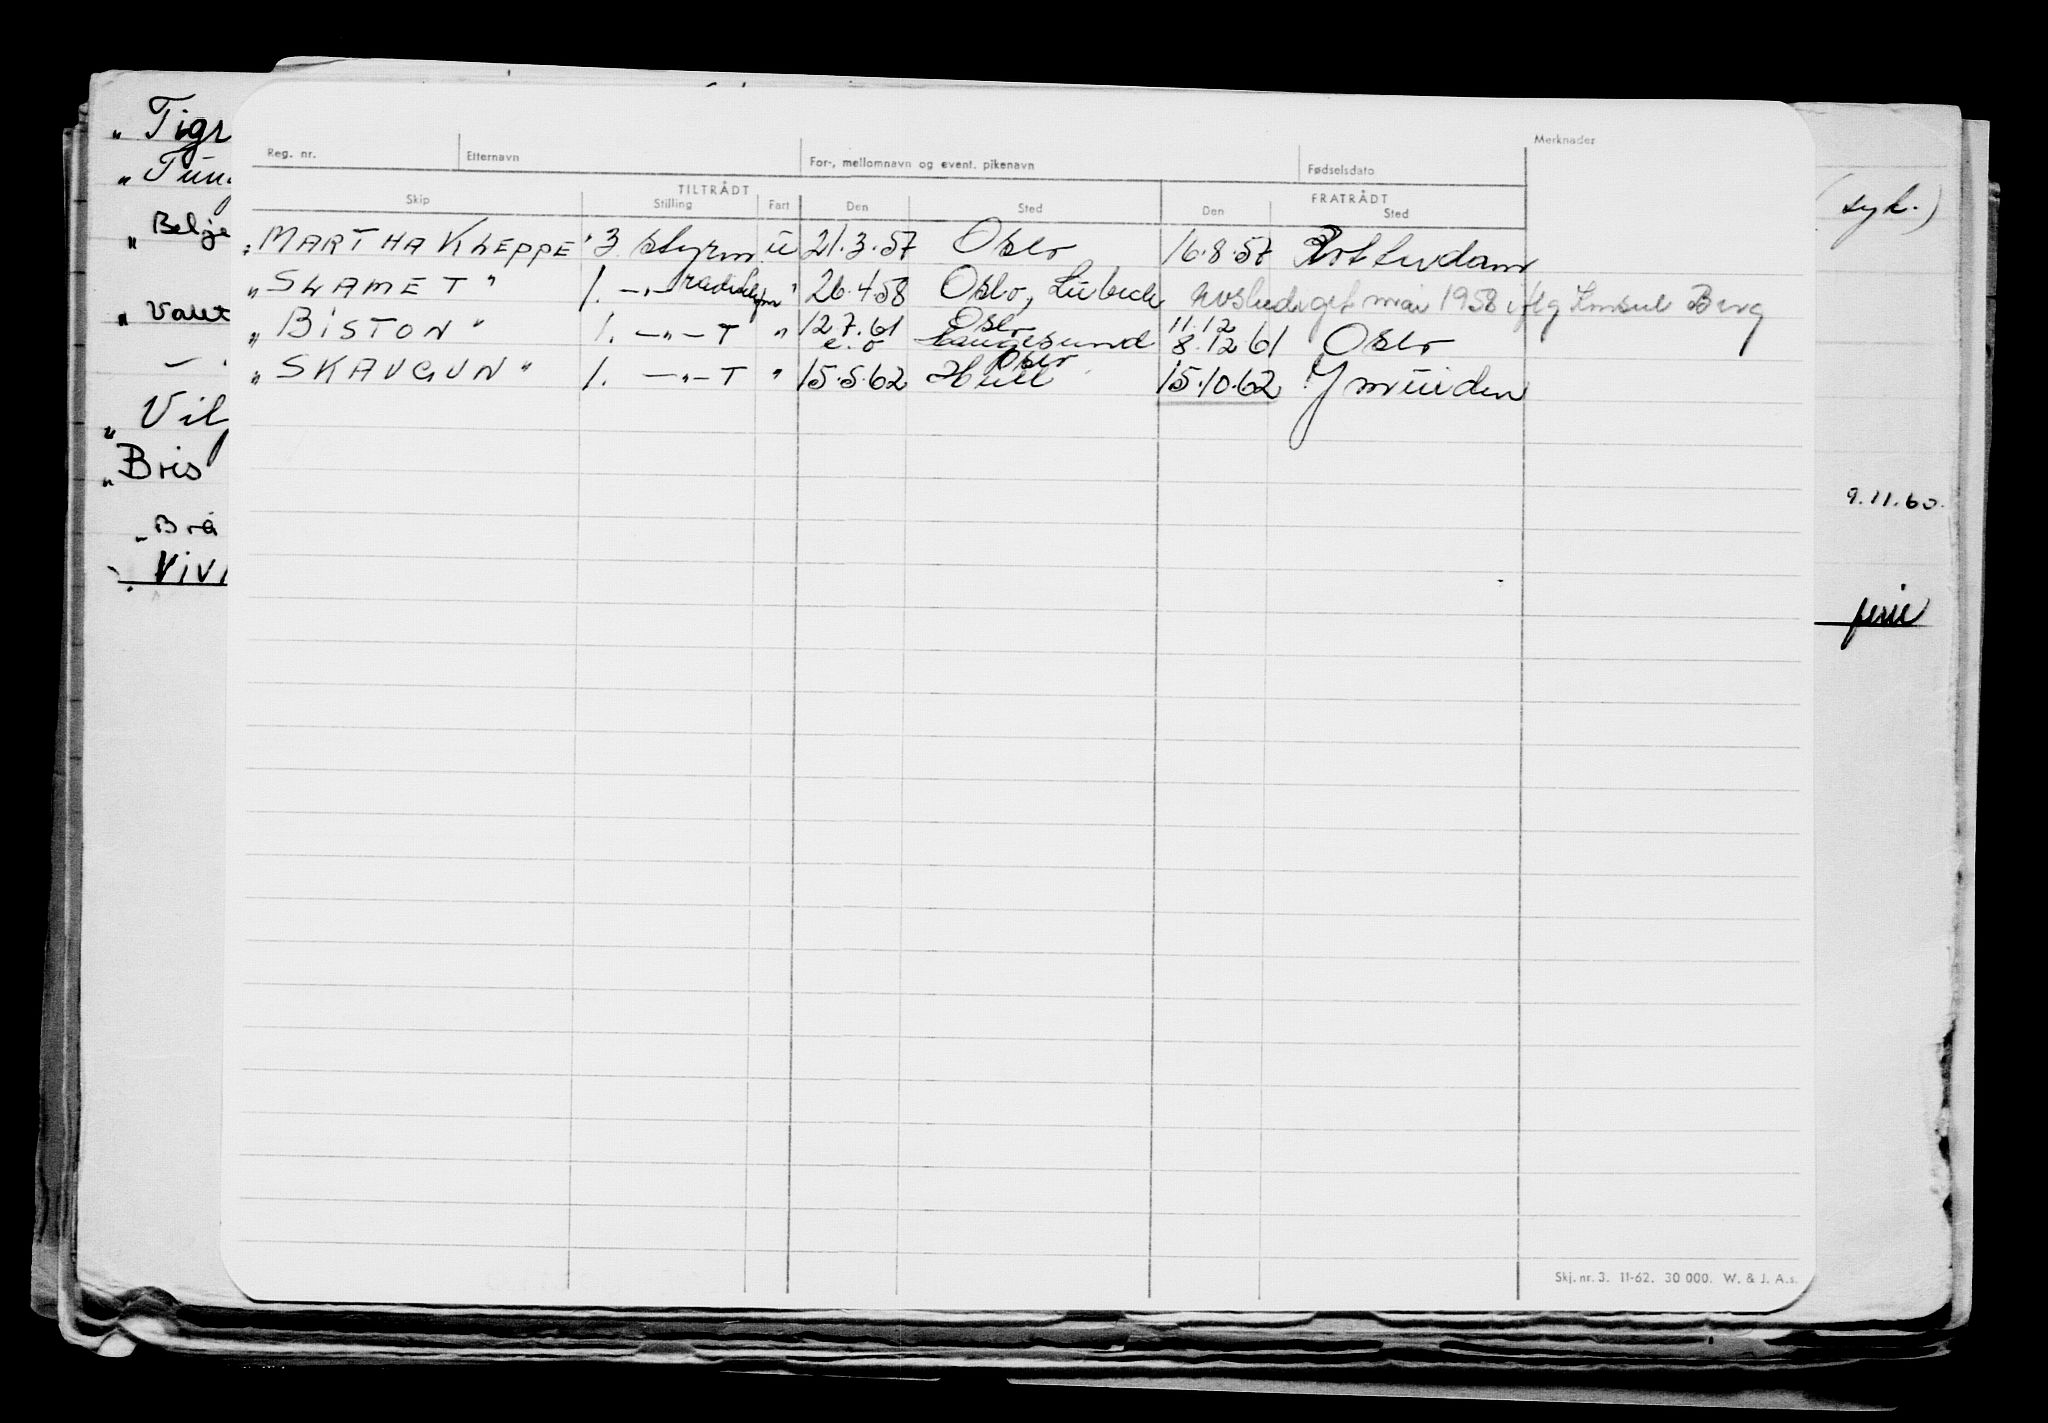 Merknader
Reg. nr. Etternavn For-, mellomnavn og event. pikenavn Fødselsdato
TILTRÅDT FRATRÅDT
Skip Stilling Fart Den Sted Den Sted
"MARTHA KLEPPE" 3. styrm ü 21.3.57 Oslo 16.8.57 Rotterdam
"SLAMET" 1. -"- " 26.4.58 Oslo, Lübeck mai 1958 iflg Konsul Berg
"BISTON" 1. -"- T " 12.7.61 Oslo 11.12
e.o Langesund 8.12 61 Oslo
"SKAUGUN" 1. -"- T " 15.5.62 Hull Oslo 15.10.62 Ymuiden
Skj. nr. 3. 11-62. 30 000. W. & J. A.s.
" Tigr
" Tung
" Belje
" Valet
" Vil
" Bris
" Bra
VIVI
(syk.)
9.11.60.
ferie